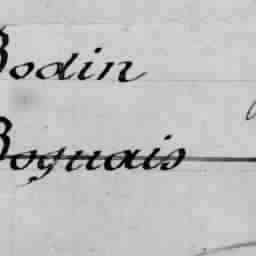 Bodin
Boguais